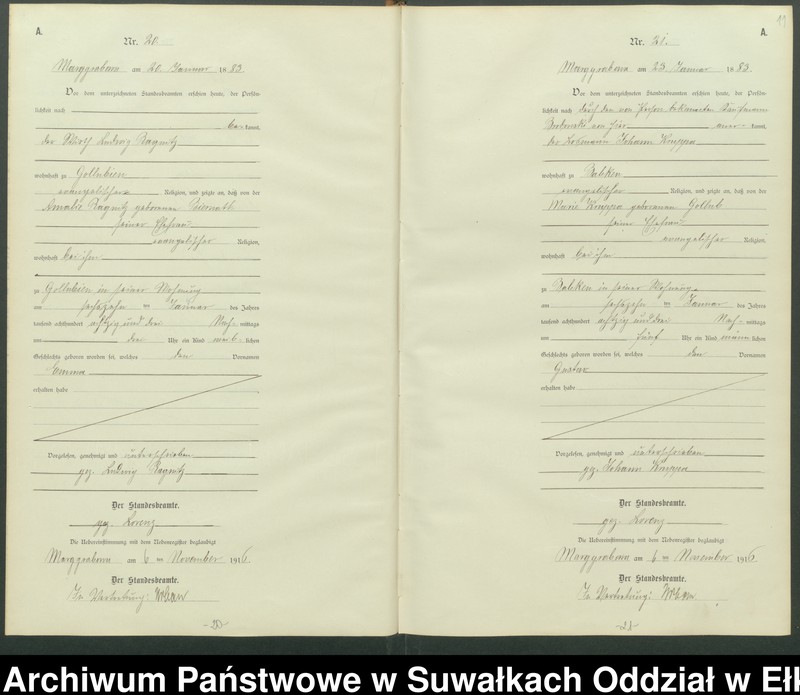 A.
Nr. 20.
Marggrabowa am 20. Januar 1883.
Vor dem unterzeichneten Standesbeamten erschien heute, der Persön-
lichkeit nach
be kannt,
der Ludwig
wohnhaft zu Gollubien
evangelischer Religion, und zeigte an, daß von der
Amalie geborenen
seiner Ehefrau
evangelischer Religion,
wohnhaft bei ihm
zu Gollubien in seiner Wohnung
am sechszehn ten Januar des Jahres
tausend achthundert achtzig und drei Nach- mittags
um drei Uhr ein Kind weib- lichen
Geschlechts geboren worden sei, welches den Vornamen
Emma
erhalten habe
Vorgelesen, genehmigt und unterschrieben
gez. Ludwig
Der Standesbeamte.
gez. Lorenz
Die Uebereinstimmung mit dem Nebenregister beglaubigt
Marggrabowa am 6 ten November 1916
Der Standesbeamte.
In Vertretung:
- 20 -
11
A.
Nr. 21.
Marggrabowa am 23. Januar 1883.
Vor dem unterzeichneten Standesbeamten erschien heute, der Persön-
lichkeit nach durch den von Person bekannten Kaufmann
von hier aner- kannt,
der Losmann Johann Kruppa
wohnhaft zu Babken
evangelischer Religion, und zeigte an, daß von der
Marie Kruppa geborenen Gollub
seiner Ehefrau
evangelischer Religion,
wohnhaft bei ihm
zu Babken in seiner Wohnung
am sechszehn ten Januar des Jahres
tausend achthundert achtzig und drei Nach- mittags
um fünf Uhr ein Kind männ- lichen
Geschlechts geboren worden sei, welches den Vornamen
Gustav
erhalten habe
Vorgelesen, genehmigt und unterschrieben
gez. Johann Kruppa
Der Standesbeamte.
gez. Lorenz
Die Uebereinstimmung mit dem Nebenregister beglaubigt
Marggrabowa am 6 ten November 1916
Der Standesbeamte.
In Vertretung:
- 21 -
Archiwum Państwowe w Suwałkach Oddział w Ełk